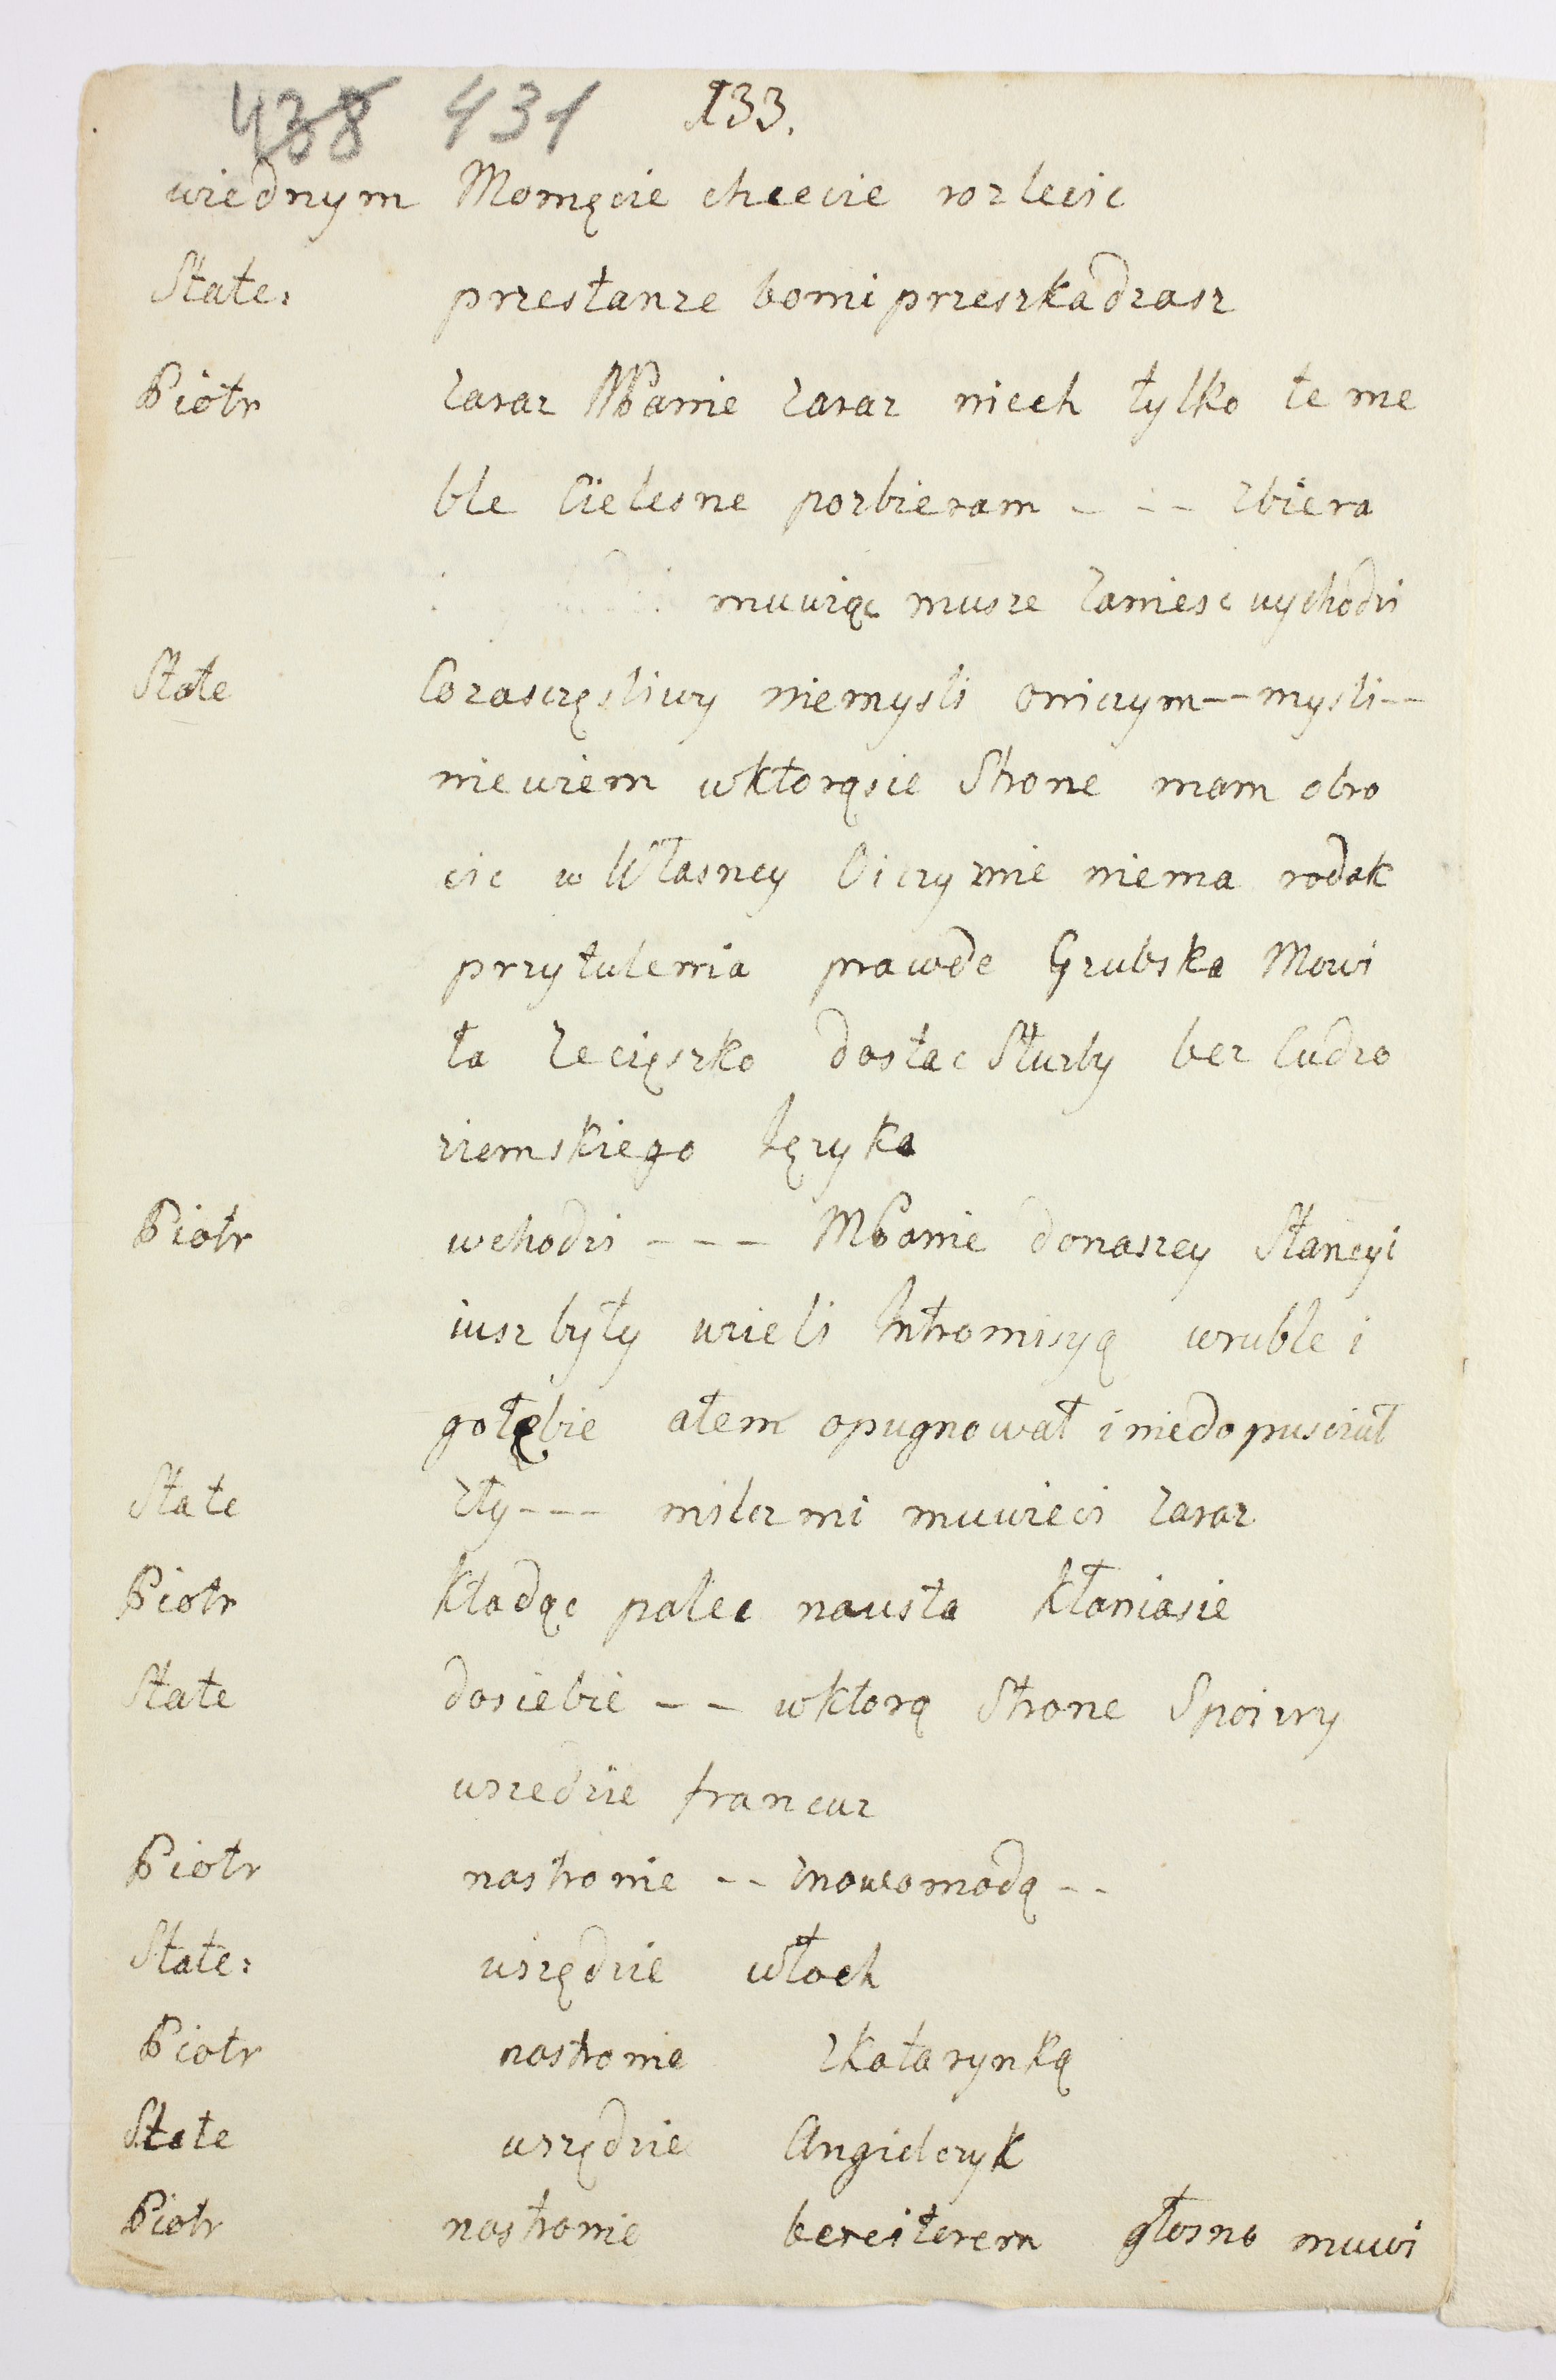 438 431 133.
wiednym Momęcie chcecie rozlecic
State: przestanze bomi przeszkadzasz
Piotr zaraz MPanie zaraz niech tylko te me
ble Cielesne pozbieram - - - zbiera
muwiąc musze zaniesc wychodzi
State Cozasczęsliwy niemysli oniczym -- mysli --
niewiem wktorąsie Strone mam obro
cic w Własney Oiczyznie niema rodak
przytulenia prawde Grubska Mowi
ła ze cięszko dostac Słuzby bez Cudzo
ziemskiego Języka
Piotr wchodzi - - - MPanie donaszey Stancyi
iusz były wzieli Intromisyą wruble i
gołębie ałem opugnował i niedopusciuł
State zły - - - milcz mi muwieci zaraz
Piotr kładąc palec nausta kłaniasie
State dosiebie - - wktorą Strone Spoizry
wszedzie francuz
Piotr nastronie -- znowomodą --
State: wszędzie włoch
Piotr nastronie zkatarynką
State wszędzie Angielczyk
Piotr nastronie bereiterem głosno muwi